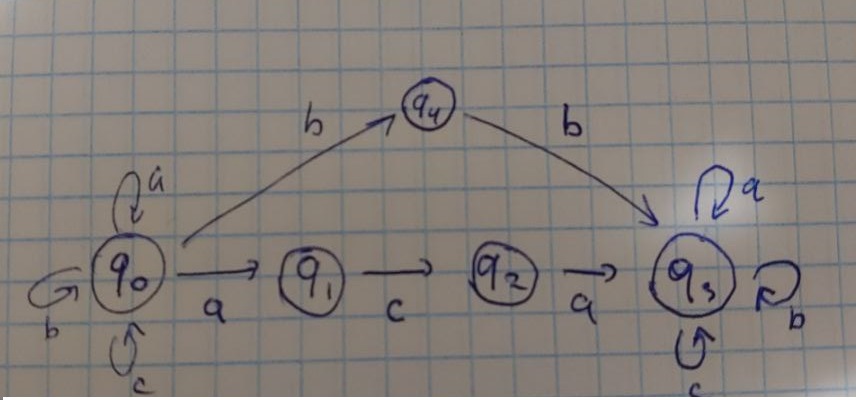 q₄
b b
a a
q₀ q₁ q₂ q₃
b a c a b
c c